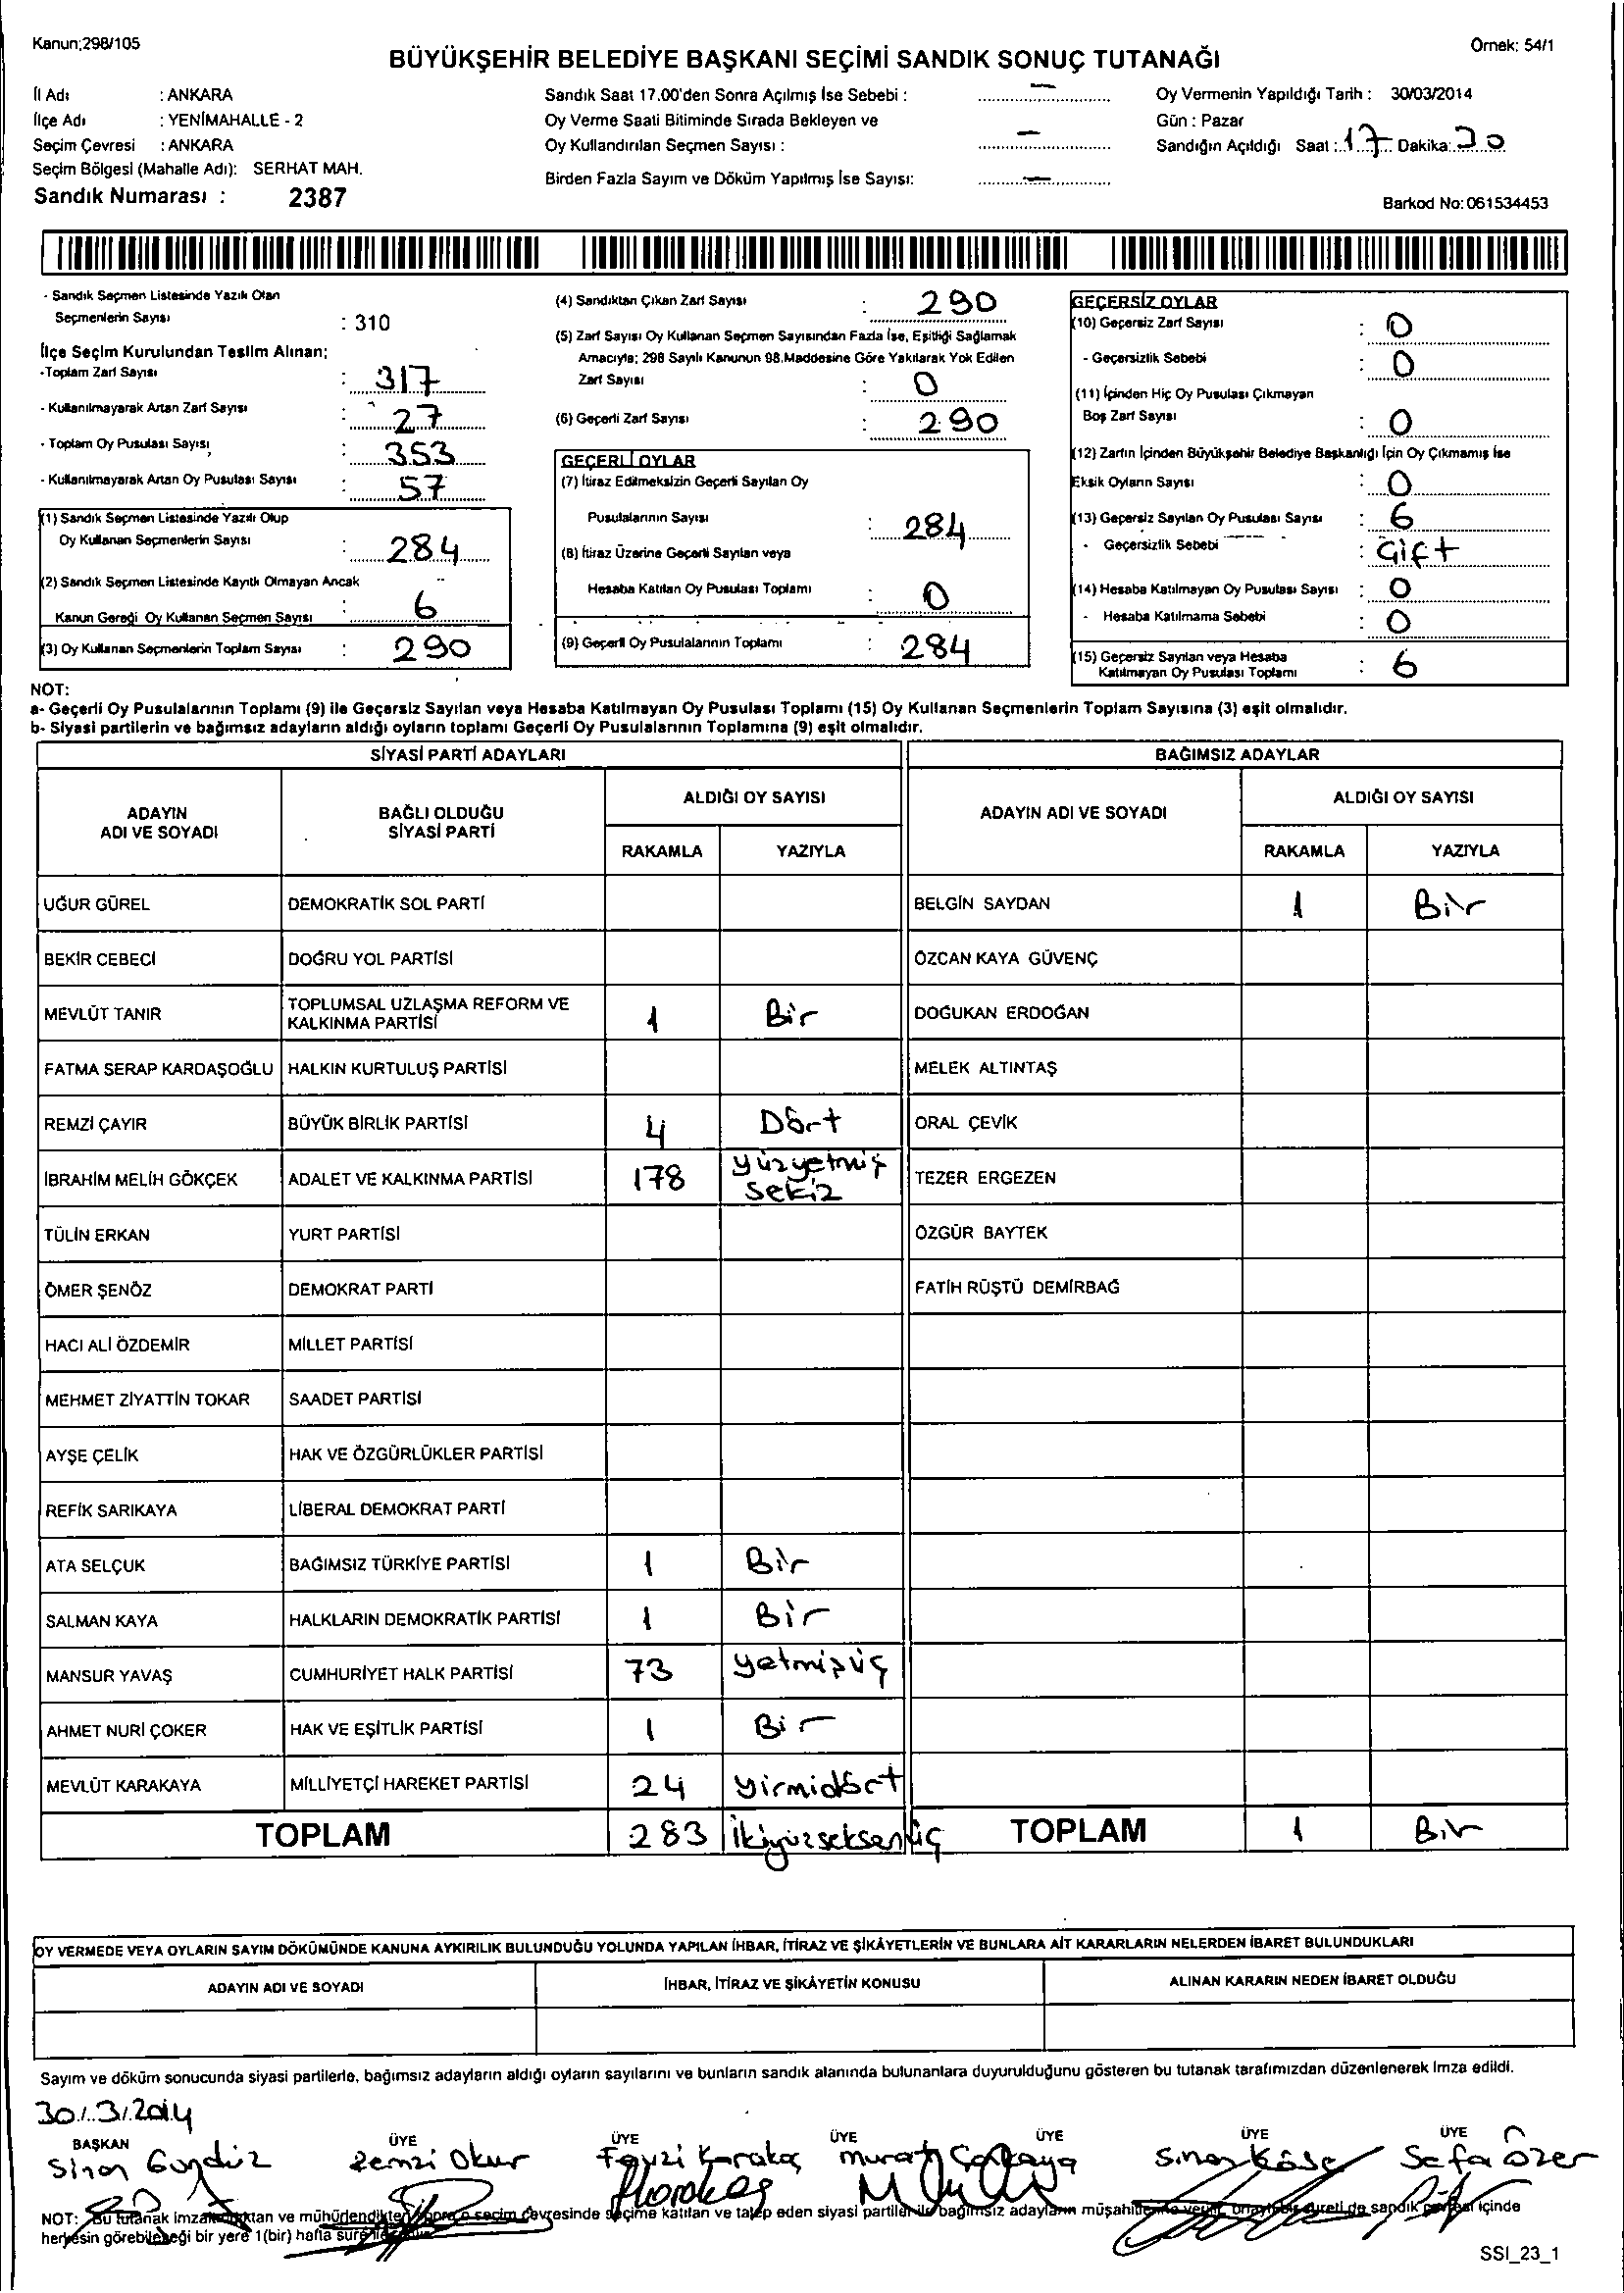 Kanun;298/105
Örnek: 54/1
BÜYÜKŞEHİR BELEDİYE BAŞKANI SEÇİMİ SANDIK SONUÇ TUTANAĞI
İl Adı : ANKARA
İlçe Adı : YENİMAHALLE - 2
Seçim Çevresi : ANKARA
Seçim Bölgesi (Mahalle Adı): SERHAT MAH.
Sandık Numarası : 2387
Sandık Saat 17.00'den Sonra Açılmış İse Sebebi : —
Oy Verme Saati Bitiminde Sırada Bekleyen ve
Oy Kullandırılan Seçmen Sayısı : —
Birden Fazla Sayım ve Döküm Yapılmış İse Sayısı: —
Oy Vermenin Yapıldığı Tarih : 30/03/2014
Gün : Pazar
Sandığın Açıldığı Saat : 17 Dakika: 20
Barkod No: 061534453
- Sandık Seçmen Listesinde Yazılı Olan
Seçmenlerin Sayısı : 310
İlçe Seçim Kurulundan Teslim Alınan;
-Toplam Zarf Sayısı : 317
- Kullanılmayarak Artan Zarf Sayısı : 27
- Toplam Oy Pusulası Sayısı : 353
- Kullanılmayarak Artan Oy Pusulası Sayısı : 57
(1) Sandık Seçmen Listesinde Yazılı Olup
Oy Kullanan Seçmenlerin Sayısı : 284
(2) Sandık Seçmen Listesinde Kayıtlı Olmayan Ancak
Kanun Gereği Oy Kullanan Seçmen Sayısı : 6
(3) Oy Kullanan Seçmenlerin Toplam Sayısı : 290
(4) Sandıktan Çıkan Zarf Sayısı : 290
(5) Zarf Sayısı Oy Kullanan Seçmen Sayısından Fazla İse, Eşitliği Sağlamak
Amacıyla; 298 Sayılı Kanunun 98.Maddesine Göre Yakılarak Yok Edilen
Zarf Sayısı : 0
(6) Geçerli Zarf Sayısı : 290
GEÇERLİ OYLAR
(7) İtiraz Edilmeksizin Geçerli Sayılan Oy
Pusulalarının Sayısı : 284
(8) İtiraz Üzerine Geçerli Sayılan veya
Hesaba Katılan Oy Pusulası Toplamı : 0
(9) Geçerli Oy Pusulalarının Toplamı : 284
GEÇERSİZ OYLAR
(10) Geçersiz Zarf Sayısı : 0
- Geçersizlik Sebebi : 0
(11) İçinden Hiç Oy Pusulası Çıkmayan
Boş Zarf Sayısı : 0
(12) Zarfın İçinden Büyükşehir Belediye Başkanlığı İçin Oy Çıkmamış İse
Eksik Oyların Sayısı : 0
(13) Geçersiz Sayılan Oy Pusulası Sayısı : 6
- Geçersizlik Sebebi : Çift
(14) Hesaba Katılmayan Oy Pusulası Sayısı : 0
- Hesaba Katılmama Sebebi : 0
(15) Geçersiz Sayılan veya Hesaba
Katılmayan Oy Pusulası Toplamı : 6
NOT:
a- Geçerli Oy Pusulalarının Toplamı (9) ile Geçersiz Sayılan veya Hesaba Katılmayan Oy Pusulası Toplamı (15) Oy Kullanan Seçmenlerin Toplam Sayısına (3) eşit olmalıdır.
b- Siyasi partilerin ve bağımsız adayların aldığı oyların toplamı Geçerli Oy Pusulalarının Toplamına (9) eşit olmalıdır.
SİYASİ PARTİ ADAYLARI BAĞIMSIZ ADAYLAR
ADAYIN ADI VE SOYADI BAĞLI OLDUĞU SİYASİ PARTİ ALDIĞI OY SAYISI ADAYIN ADI VE SOYADI ALDIĞI OY SAYISI
RAKAMLA YAZIYLA RAKAMLA YAZIYLA
UĞUR GÜREL DEMOKRATİK SOL PARTİ BELGİN SAYDAN 1 Bir
BEKİR CEBECİ DOĞRU YOL PARTİSİ ÖZCAN KAYA GÜVENÇ
MEVLÜT TANIR TOPLUMSAL UZLAŞMA REFORM VE KALKINMA PARTİSİ 1 Bir DOĞUKAN ERDOĞAN
FATMA SERAP KARDAŞOĞLU HALKIN KURTULUŞ PARTİSİ MELEK ALTINTAŞ
REMZİ ÇAYIR BÜYÜK BİRLİK PARTİSİ 4 Dört ORAL ÇEVİK
İBRAHİM MELİH GÖKÇEK ADALET VE KALKINMA PARTİSİ 178 yüzyetmiş sekiz TEZER ERGEZEN
TÜLİN ERKAN YURT PARTİSİ ÖZGÜR BAYTEK
ÖMER ŞENÖZ DEMOKRAT PARTİ FATİH RÜŞTÜ DEMİRBAĞ
HACI ALİ ÖZDEMİR MİLLET PARTİSİ
MEHMET ZİYATTİN TOKAR SAADET PARTİSİ
AYŞE ÇELİK HAK VE ÖZGÜRLÜKLER PARTİSİ
REFİK SARIKAYA LİBERAL DEMOKRAT PARTİ
ATA SELÇUK BAĞIMSIZ TÜRKİYE PARTİSİ 1 Bir
SALMAN KAYA HALKLARIN DEMOKRATİK PARTİSİ 1 Bir
MANSUR YAVAŞ CUMHURİYET HALK PARTİSİ 73 yetmişüç
AHMET NURİ ÇOKER HAK VE EŞİTLİK PARTİSİ 1 Bir
MEVLÜT KARAKAYA MİLLİYETÇİ HAREKET PARTİSİ 24 yirmidört
TOPLAM 283 İkiyüzseksenüç TOPLAM 1 Bir
OY VERMEDE VEYA OYLARIN SAYIM DÖKÜMÜNDE KANUNA AYKIRILIK BULUNDUĞU YOLUNDA YAPILAN İHBAR, İTİRAZ VE ŞİKÂYETLERİN VE BUNLARA AİT KARARLARIN NELERDEN İBARET BULUNDUKLARI
ADAYIN ADI VE SOYADI İHBAR, İTİRAZ VE ŞİKÂYETİN KONUSU ALINAN KARARIN NEDEN İBARET OLDUĞU
Sayım ve döküm sonucunda siyasi partilerle, bağımsız adayların aldığı oyların sayılarını ve bunların sandık alanında bulunanlara duyurulduğunu gösteren bu tutanak tarafımızdan düzenlenerek imza edildi.
30/.3/.2014
BAŞKAN ÜYE ÜYE ÜYE ÜYE ÜYE ÜYE
Sinan Gündüz Remzi Okur Fevzi Karakoç Murat Çakaya Sinan Köse Sefa Özer
NOT: Bu tutanak imzalandıktan ve mühürlendikten sonra o seçim çevresinde seçime katılan ve talep eden siyasi partiler ile bağımsız adayların müşahitlerine verilir, onaylı bir sureti de sandık çevresi içinde
herkesin görebileceği bir yere 1(bir) hafta süre ile
SSI_23_1